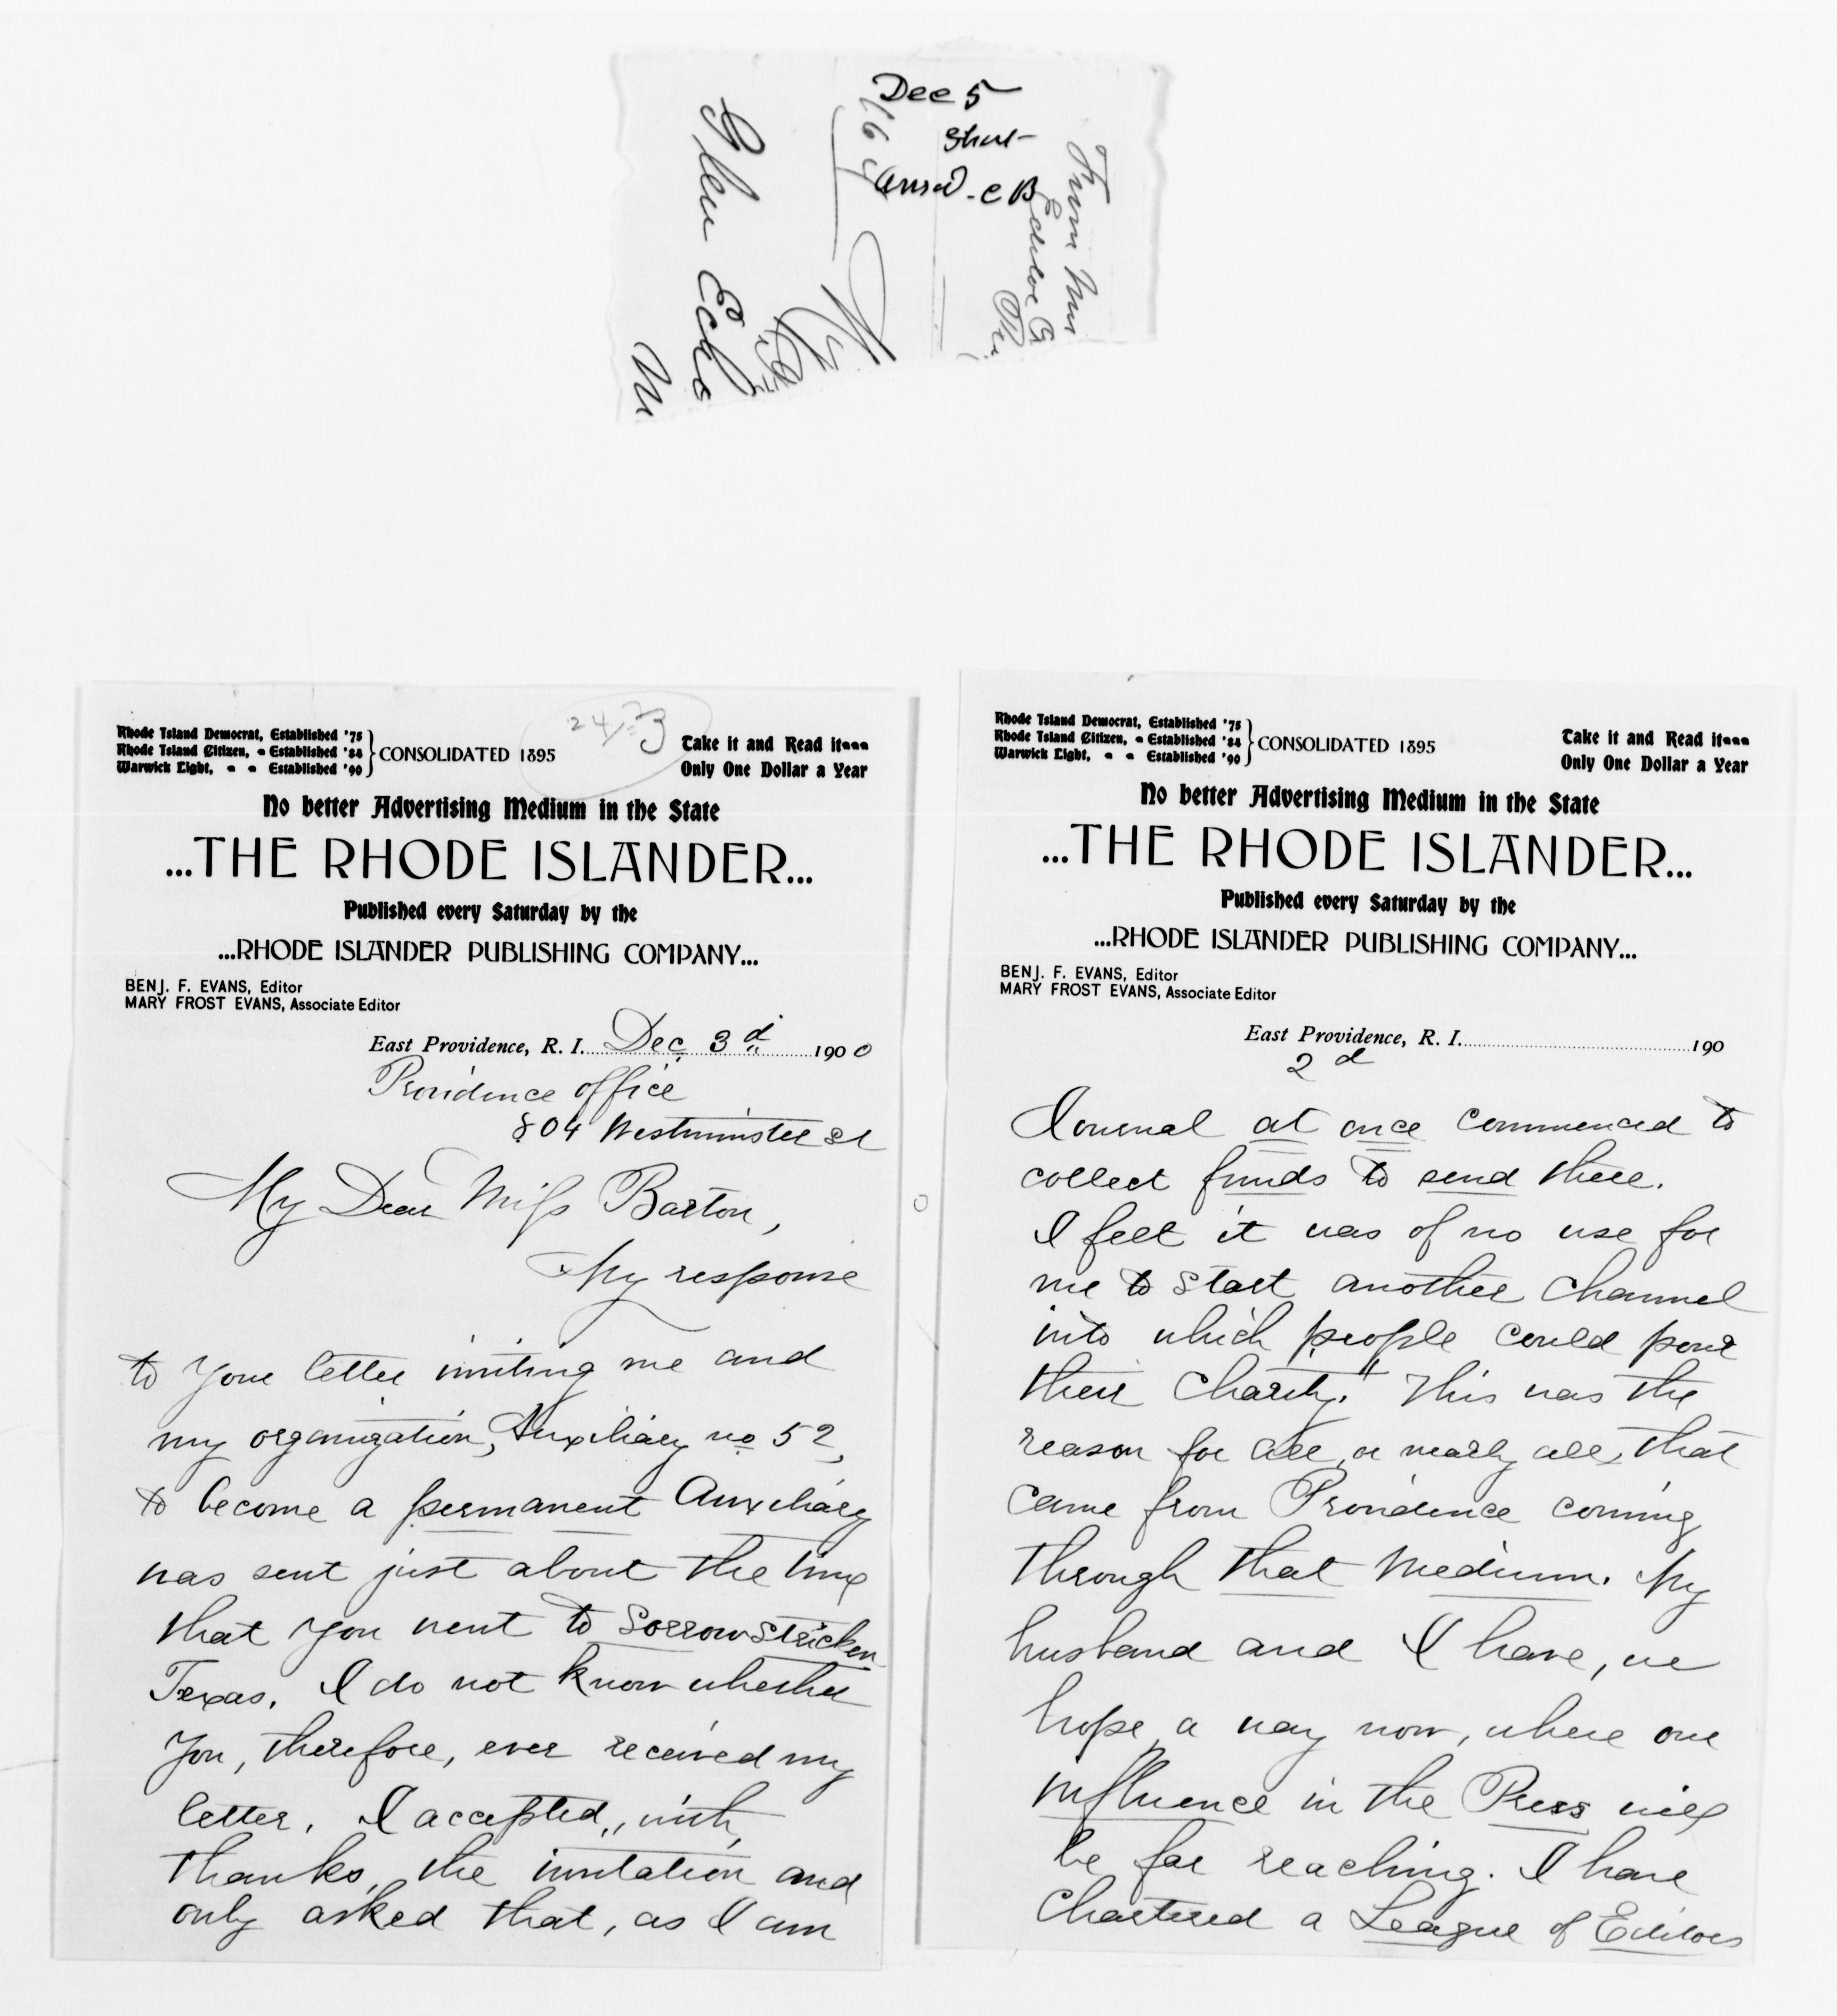 Dec 5
Short
Ansd - C B
Glen Echo
From Mrs
Rhode Island Democrat, Established '75
Rhode Island Citizen, - Established '84
Warwick Light, - - Established '90
CONSOLIDATED 1895
24/23
Take it and Read it
Only One Dollar a Year
No better Advertising Medium in the State
...THE RHODE ISLANDER...
Published every Saturday by the
...RHODE ISLANDER PUBLISHING COMPANY...
BENJ. F. EVANS, Editor
MARY FROST EVANS, Associate Editor
East Providence, R. I. Dec 3d 1900
Providence office
804 Westminster St
My Dear Miss Barton,
My response
to your letter inviting me and
my organization, Auxiliary no 52,
to become a permanent Auxiliary
was sent just about the time
that you went to sorrow stricken
Texas. I do not know whether
you, therefore, ever received my
letter. I accepted, with
thanks, the invitation and
only asked that, as I am
Rhode Island Democrat, Established '75
Rhode Island Citizen, - Established '84
Warwick Light, - - Established '90
CONSOLIDATED 1895
Take it and Read it
Only One Dollar a Year
No better Advertising Medium in the State
...THE RHODE ISLANDER...
Published every Saturday by the
...RHODE ISLANDER PUBLISHING COMPANY...
BENJ. F. EVANS, Editor
MARY FROST EVANS, Associate Editor
East Providence, R. I. 190
2d
Journal at once commenced to
collect funds to send there.
I felt it was of no use for
me to start another channel
into which people could pour
their charity." This was the
reason for all, or nearly all, that
came from Providence coming
through that medium. My
husband and I have, we
hope, a way now, where our
influence in the Press will
be far reaching. I have
chartered a League of Editors